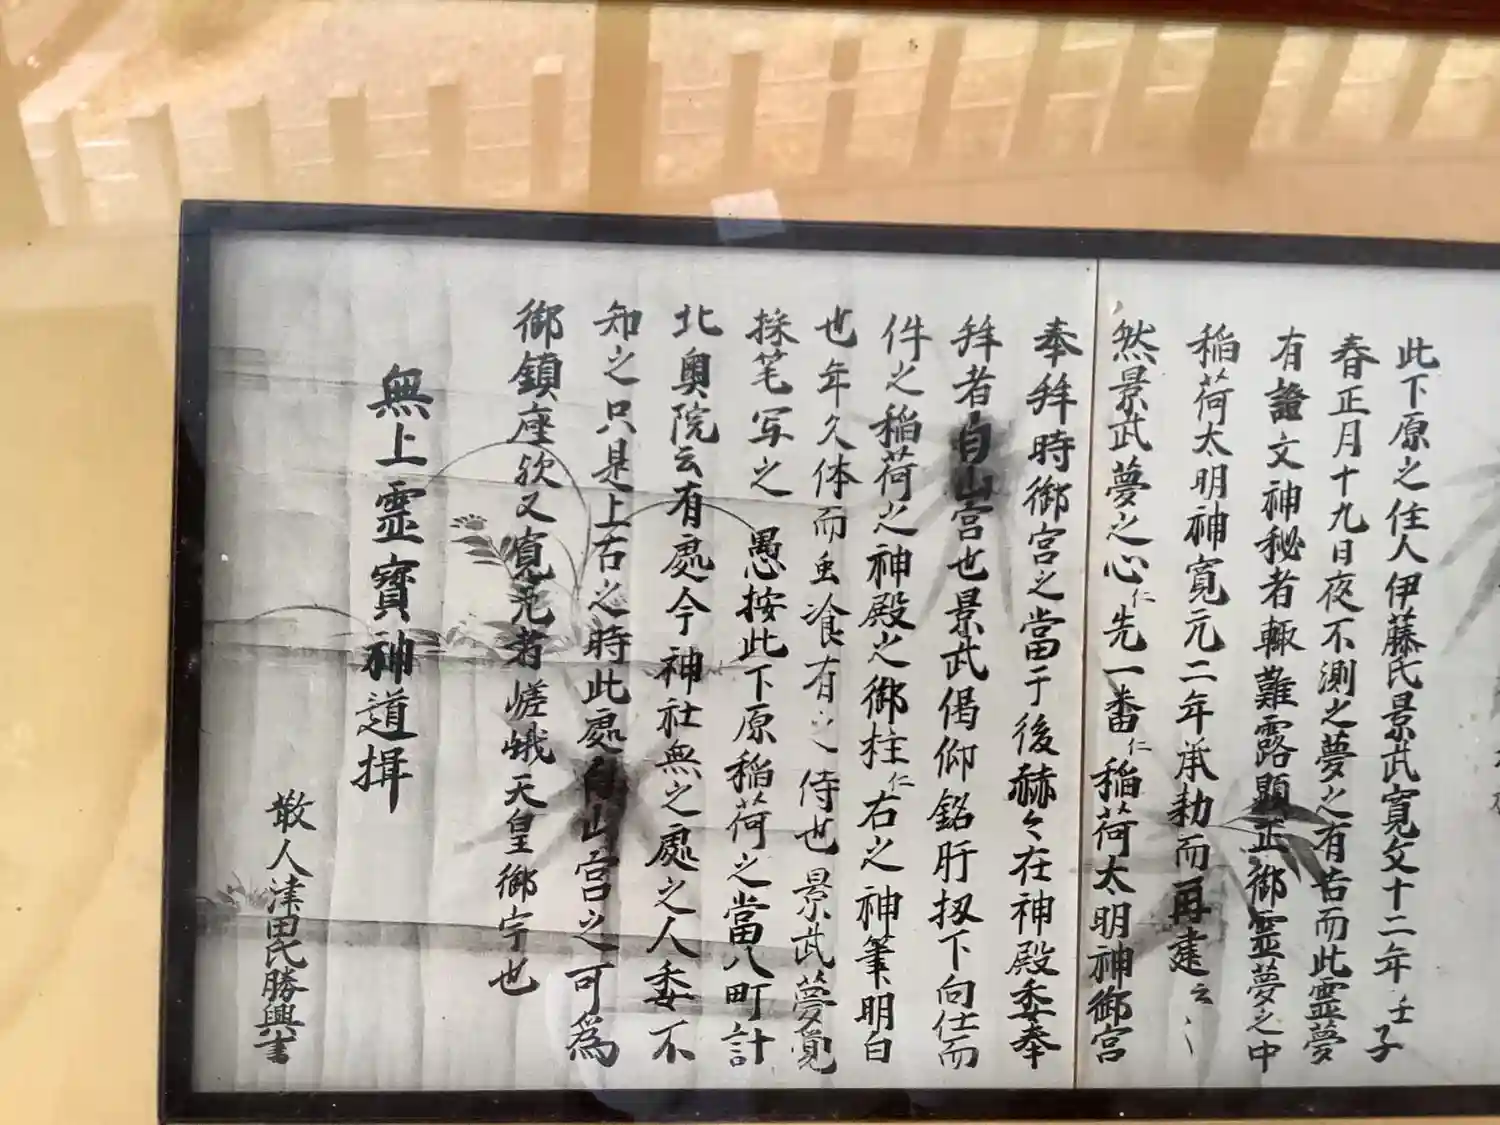 此下原之住人伊藤氏景武寛文十二年壬子
春正月十九日夜不測之夢之有告而此霊夢
有證文神秘者輙難露顕正御霊夢之中
稲荷太明神寛元二年承勅而再建云々
然景武夢之心仁先一番仁稲荷太明神御宮
奉拜時御宮之當于後赫々在神殿委奉
拜者白山宮也景武偈仰銘肝扨下向仕而
件之稲荷之神殿之御柱仁右之神筆明白
也年久体而虫飡有之侍也景武夢覚
採笔写之 愚按此下原稲荷之當八町計
北奥院云有處今神社無之處之人委不
知之只是上古之時此處白山宮之可為
御鎮座欤又寛元者嵯峨天皇御宇也
無上霊寳神道揖
散人津田氏勝興書